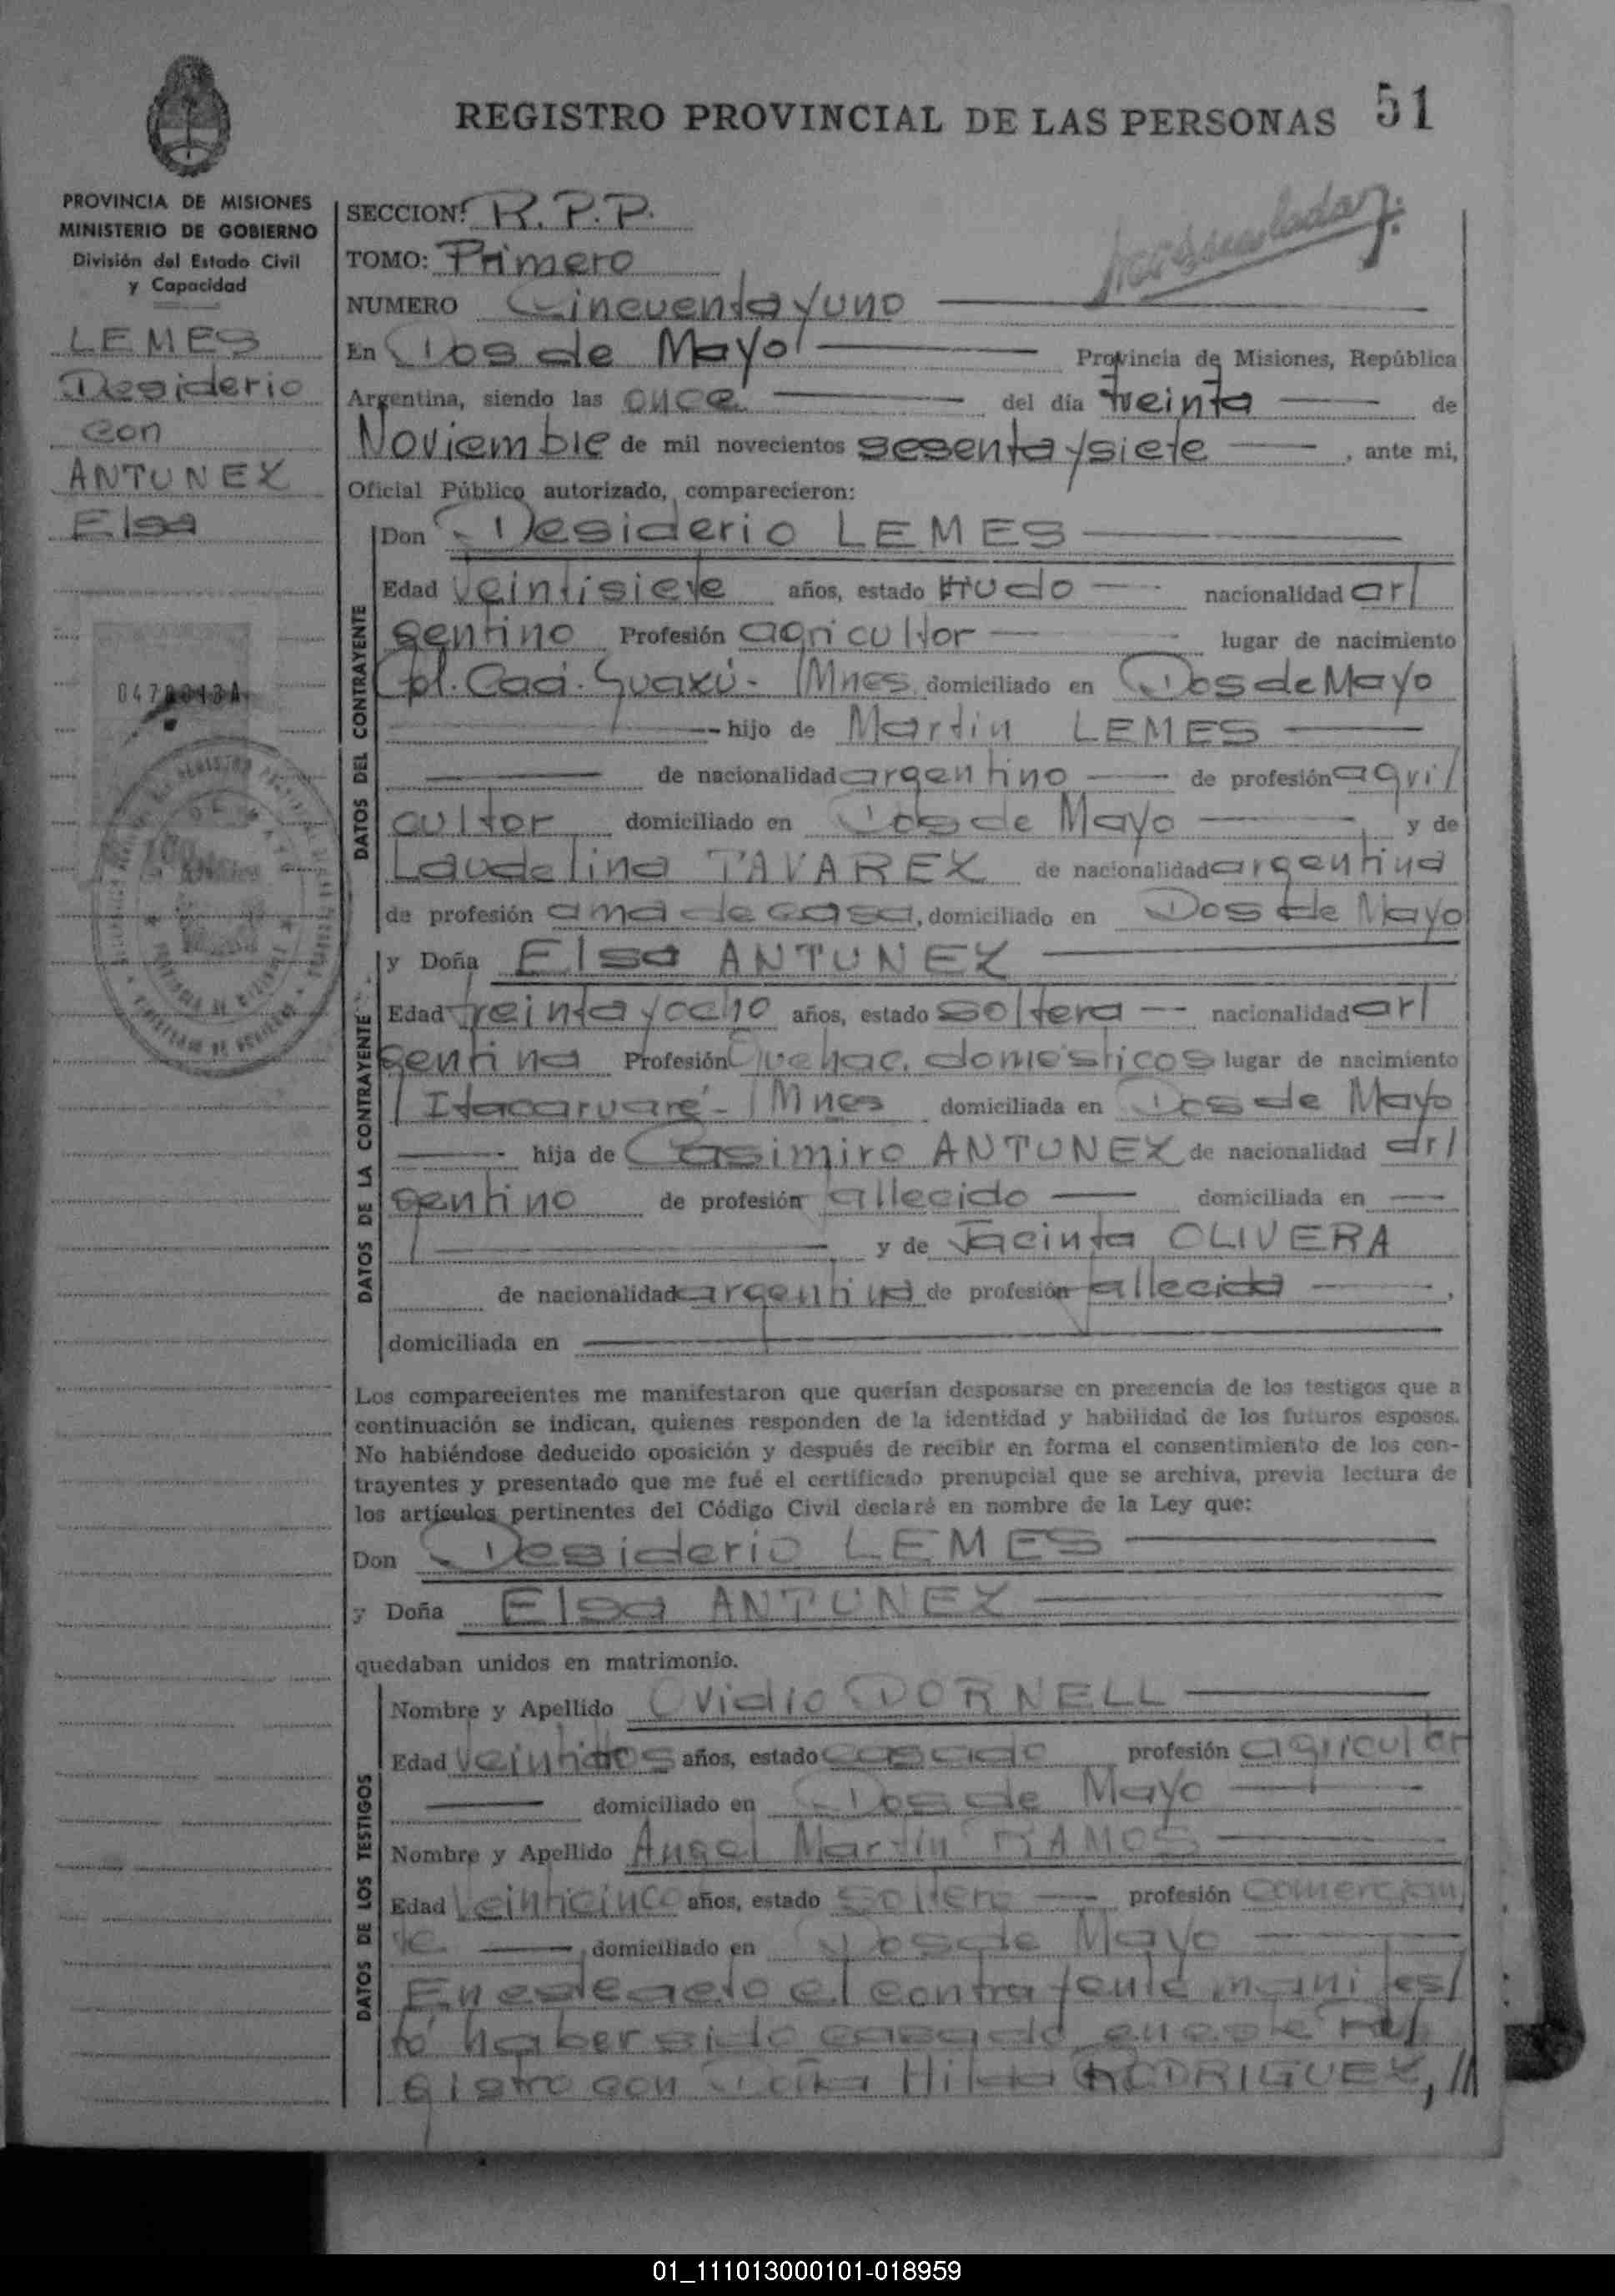 REGISTRO PROVINCIAL DE LAS PERSONAS 51
PROVINCIA DE MISIONES
MINISTERIO DE GOBIERNO
División del Estado Civil
y Capacidad
LEMES
Desiderio
con
ANTUNEZ
Elsa
SECCION: R.P.P.
TOMO: Primero
NUMERO Cincuenta y uno
En Dos de Mayo Provincia de Misiones, República
Argentina, siendo las once del día treinta de
Noviembre de mil novecientos sesenta y siete, ante mi,
Oficial Público autorizado, comparecieron:
DATOS DEL CONTRAYENTE
Don Desiderio LEMES
Edad veintisiete años, estado viudo nacionalidad ar/
gentino Profesión agricultor lugar de nacimiento
Cpl. Caá-Guazú-/Mnes domiciliado en Dos de Mayo
hijo de Martin LEMES
de nacionalidad argentino de profesión agri/
cultor domiciliado en Dos de Mayo y de
Laudelina TAVAREZ de nacionalidad argentina
de profesión ama de casa, domiciliado en Dos de Mayo
DATOS DE LA CONTRAYENTE
y Doña Elsa ANTUNEZ
Edad treinta y ocho años, estado soltera nacionalidad ar/
gentina Profesión Quehac. domésticos lugar de nacimiento
Itacaruaré-/Mnes domiciliada en Dos de Mayo
hija de Casimiro ANTUNEZ de nacionalidad ar/
gentino de profesión fallecido domiciliada en
y de Jacinta OLIVERA
de nacionalidad argentina de profesión fallecida,
domiciliada en
Los comparecientes me manifestaron que querían desposarse en presencia de los testigos que a
continuación se indican, quienes responden de la identidad y habilidad de los futuros esposos.
No habiéndose deducido oposición y después de recibir en forma el consentimiento de los con-
trayentes y presentado que me fué el certificado prenupcial que se archiva, previa lectura de
los artículos pertinentes del Código Civil declaré en nombre de la Ley que:
Don Desiderio LEMES
y Doña Elsa ANTUNEZ
quedaban unidos en matrimonio.
DATOS DE LOS TESTIGOS
Nombre y Apellido Ovidio DORNELL
Edad veintidos años, estado casado profesión agricultor
domiciliado en Dos de Mayo
Nombre y Apellido Angel Martín RAMOS
Edad veinticinco años, estado soltero profesión comercian/
te domiciliado en Dos de Mayo
En este acto el contrayente manifes/
tó haber sido casado en este re/
gistro con Doña Hilda RODRIGUEZ, //
01_111013000101-018959